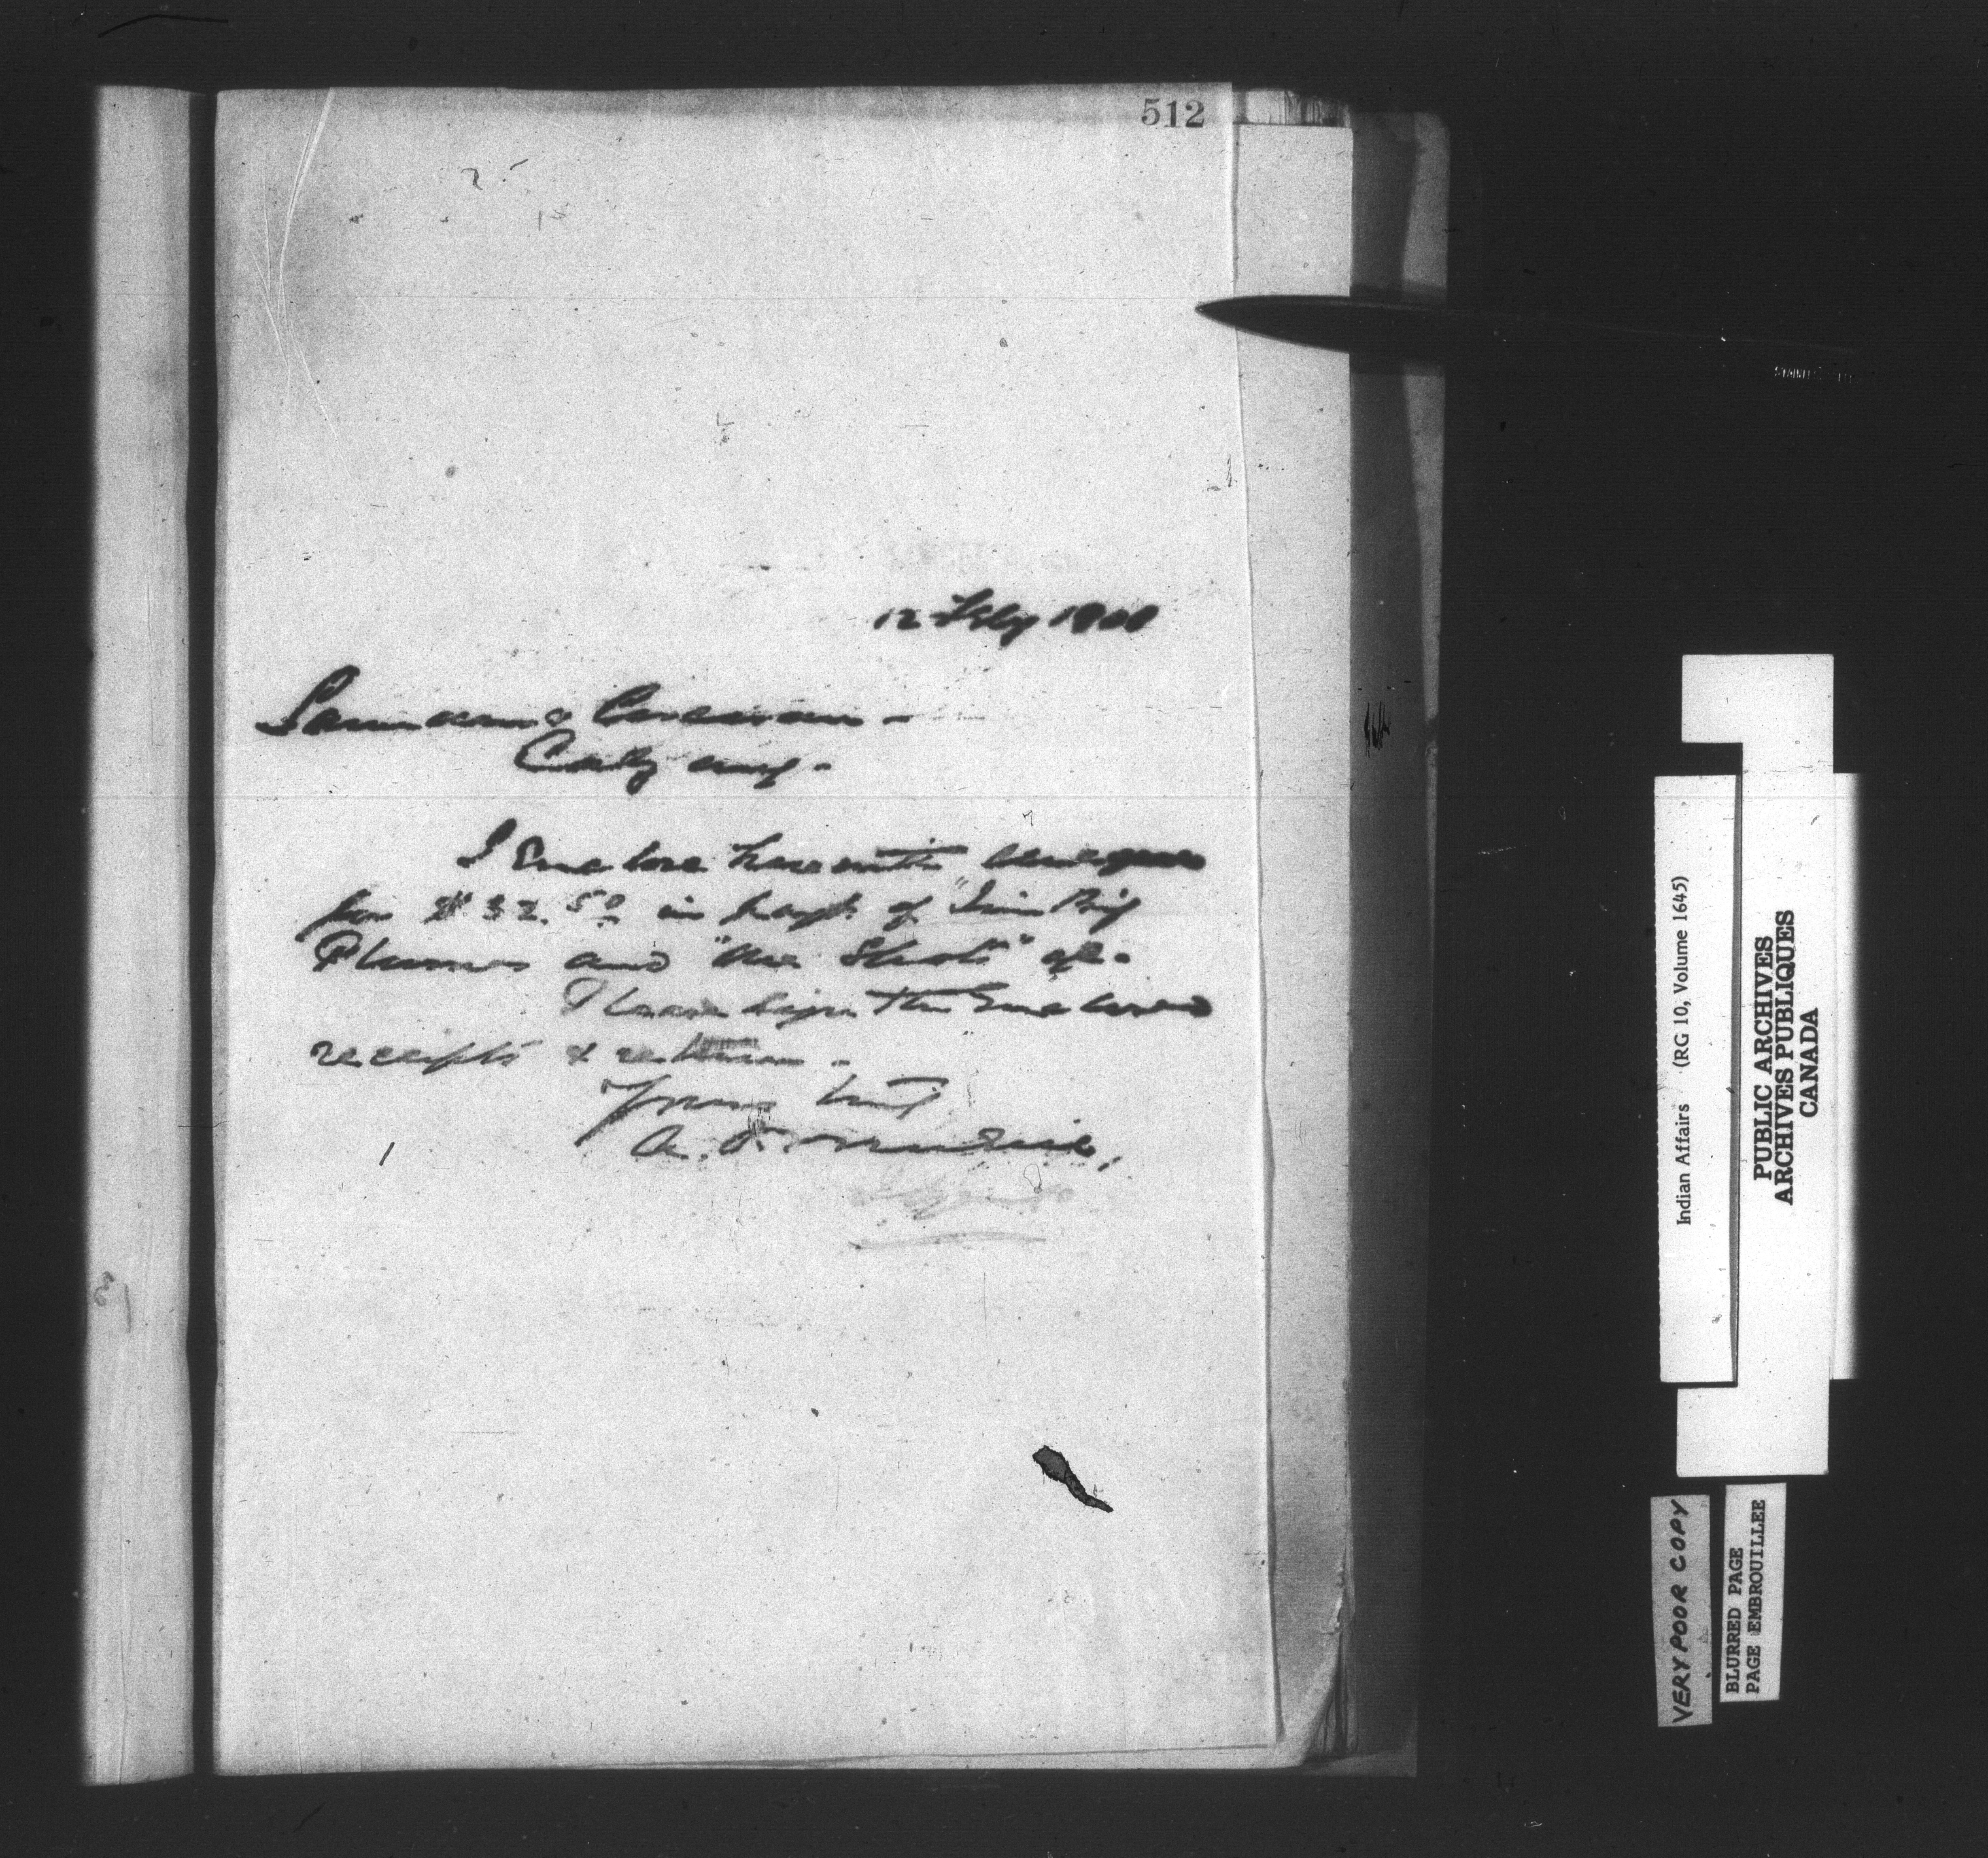 512
12 Feby 1900
Calgary.
I Enclose herewith cheque
for $32.50 in payt of "Jim Big
Plume" and "One Shot" a/c.
Please sign the Enclosed
receipts & return.
Yours truly
Indian Affairs (RG 10, Volume 1645)
PUBLIC ARCHIVES
ARCHIVES PUBLIQUES
CANADA
VERY POOR COPY
BLURRED PAGE
PAGE EMBROUILLEE